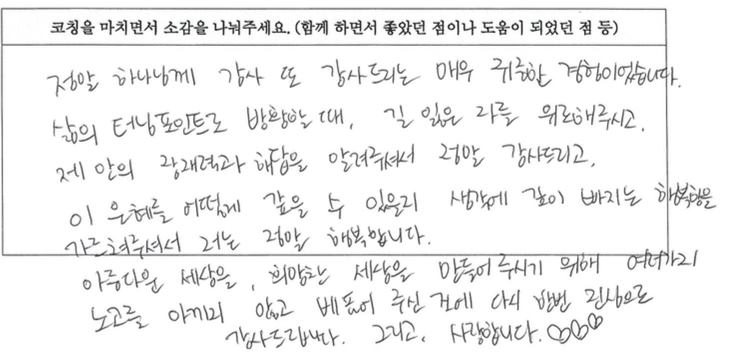 코칭을 마치면서 소감을 나눠주세요. (함께 하면서 좋았던 점이나 도움이 되었던 점 등)
정말 하나님께 감사 또 감사드리는 매우 귀중한 경험이었습니다.
삶의 터닝포인트로 방황할 때, 길 잃은 나를 위로해주시고,
제 안의 잠재력과 해답을 알려주셔서 정말 감사드리고,
이 은혜를 어떻게 갚을 수 있을지 생각에 깊이 빠지는 행복함을
가르쳐주셔서 저는 정말 행복합니다.
아름다운 세상을, 희망찬 세상을 만들어 주시기 위해 여러가지
노고를 아끼지 않고 베풀어 주신 것에 다시 한번 진심으로
감사드립니다. 그리고, 사랑합니다.♡♡♡